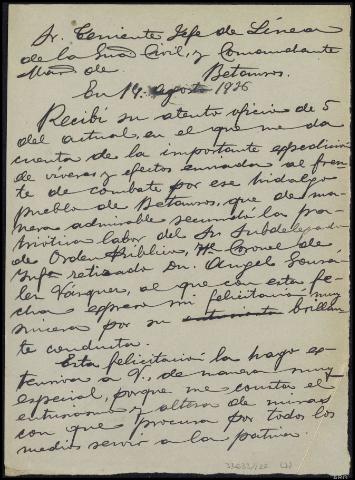 Sr. Teniente Jefe de Línea
de la Gua Civil, y Comandante
de Betanzos.
En 14 agosto 1936
Recibí su atento oficio de 5
del actual, en el que me da
cuenta de la importante expedición
de víveres y efectos enviada al fren-
te de combate por ese hidalgo
pueblo de Betanzos, que de ma-
nera admirable secunda la pa-
triótica labor del Sr. Subdelegado
de Orden Público, Coronel de
Infa retirado Dn. Angel Gonza-
lez Vázquez, al que con esta fe-
cha expreso mi felicitación muy
sincera por su brillan-
te conducta.
Esta felicitación la hago ex-
tensiva a V., de manera muy
especial, porque me consta el
entusiasmo y alteza de miras
con que procura por todos los
medios servir a la patria.